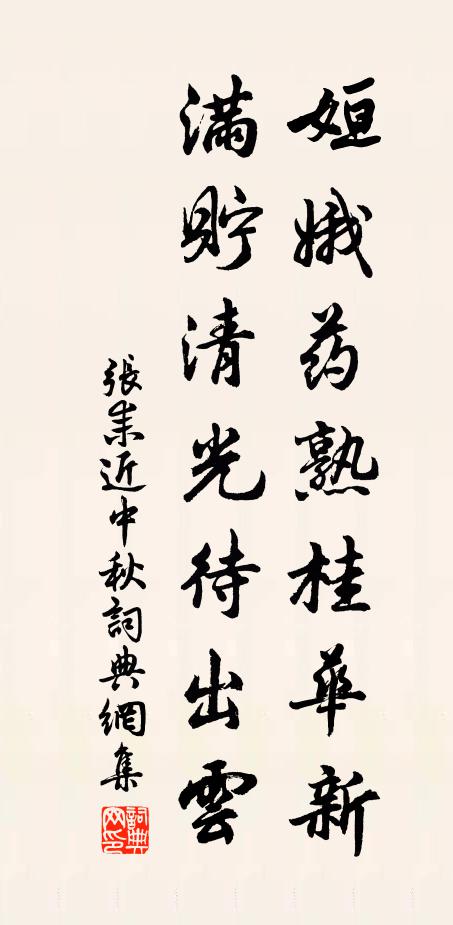 姮娥药熟桂華新
滿貯清光待出雲
張耒近中秋詞典網集
詞典網印